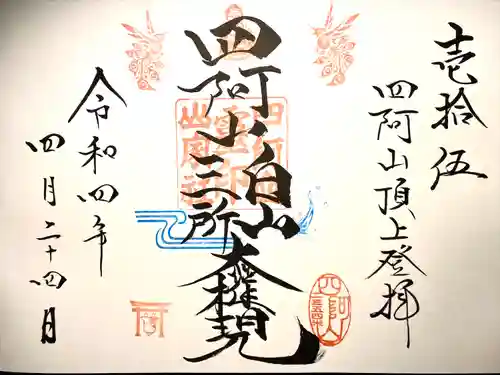 壱拾伍
四阿山頂上登拝
四阿山
白山
三所
大権現
令和四年
四月二十四日